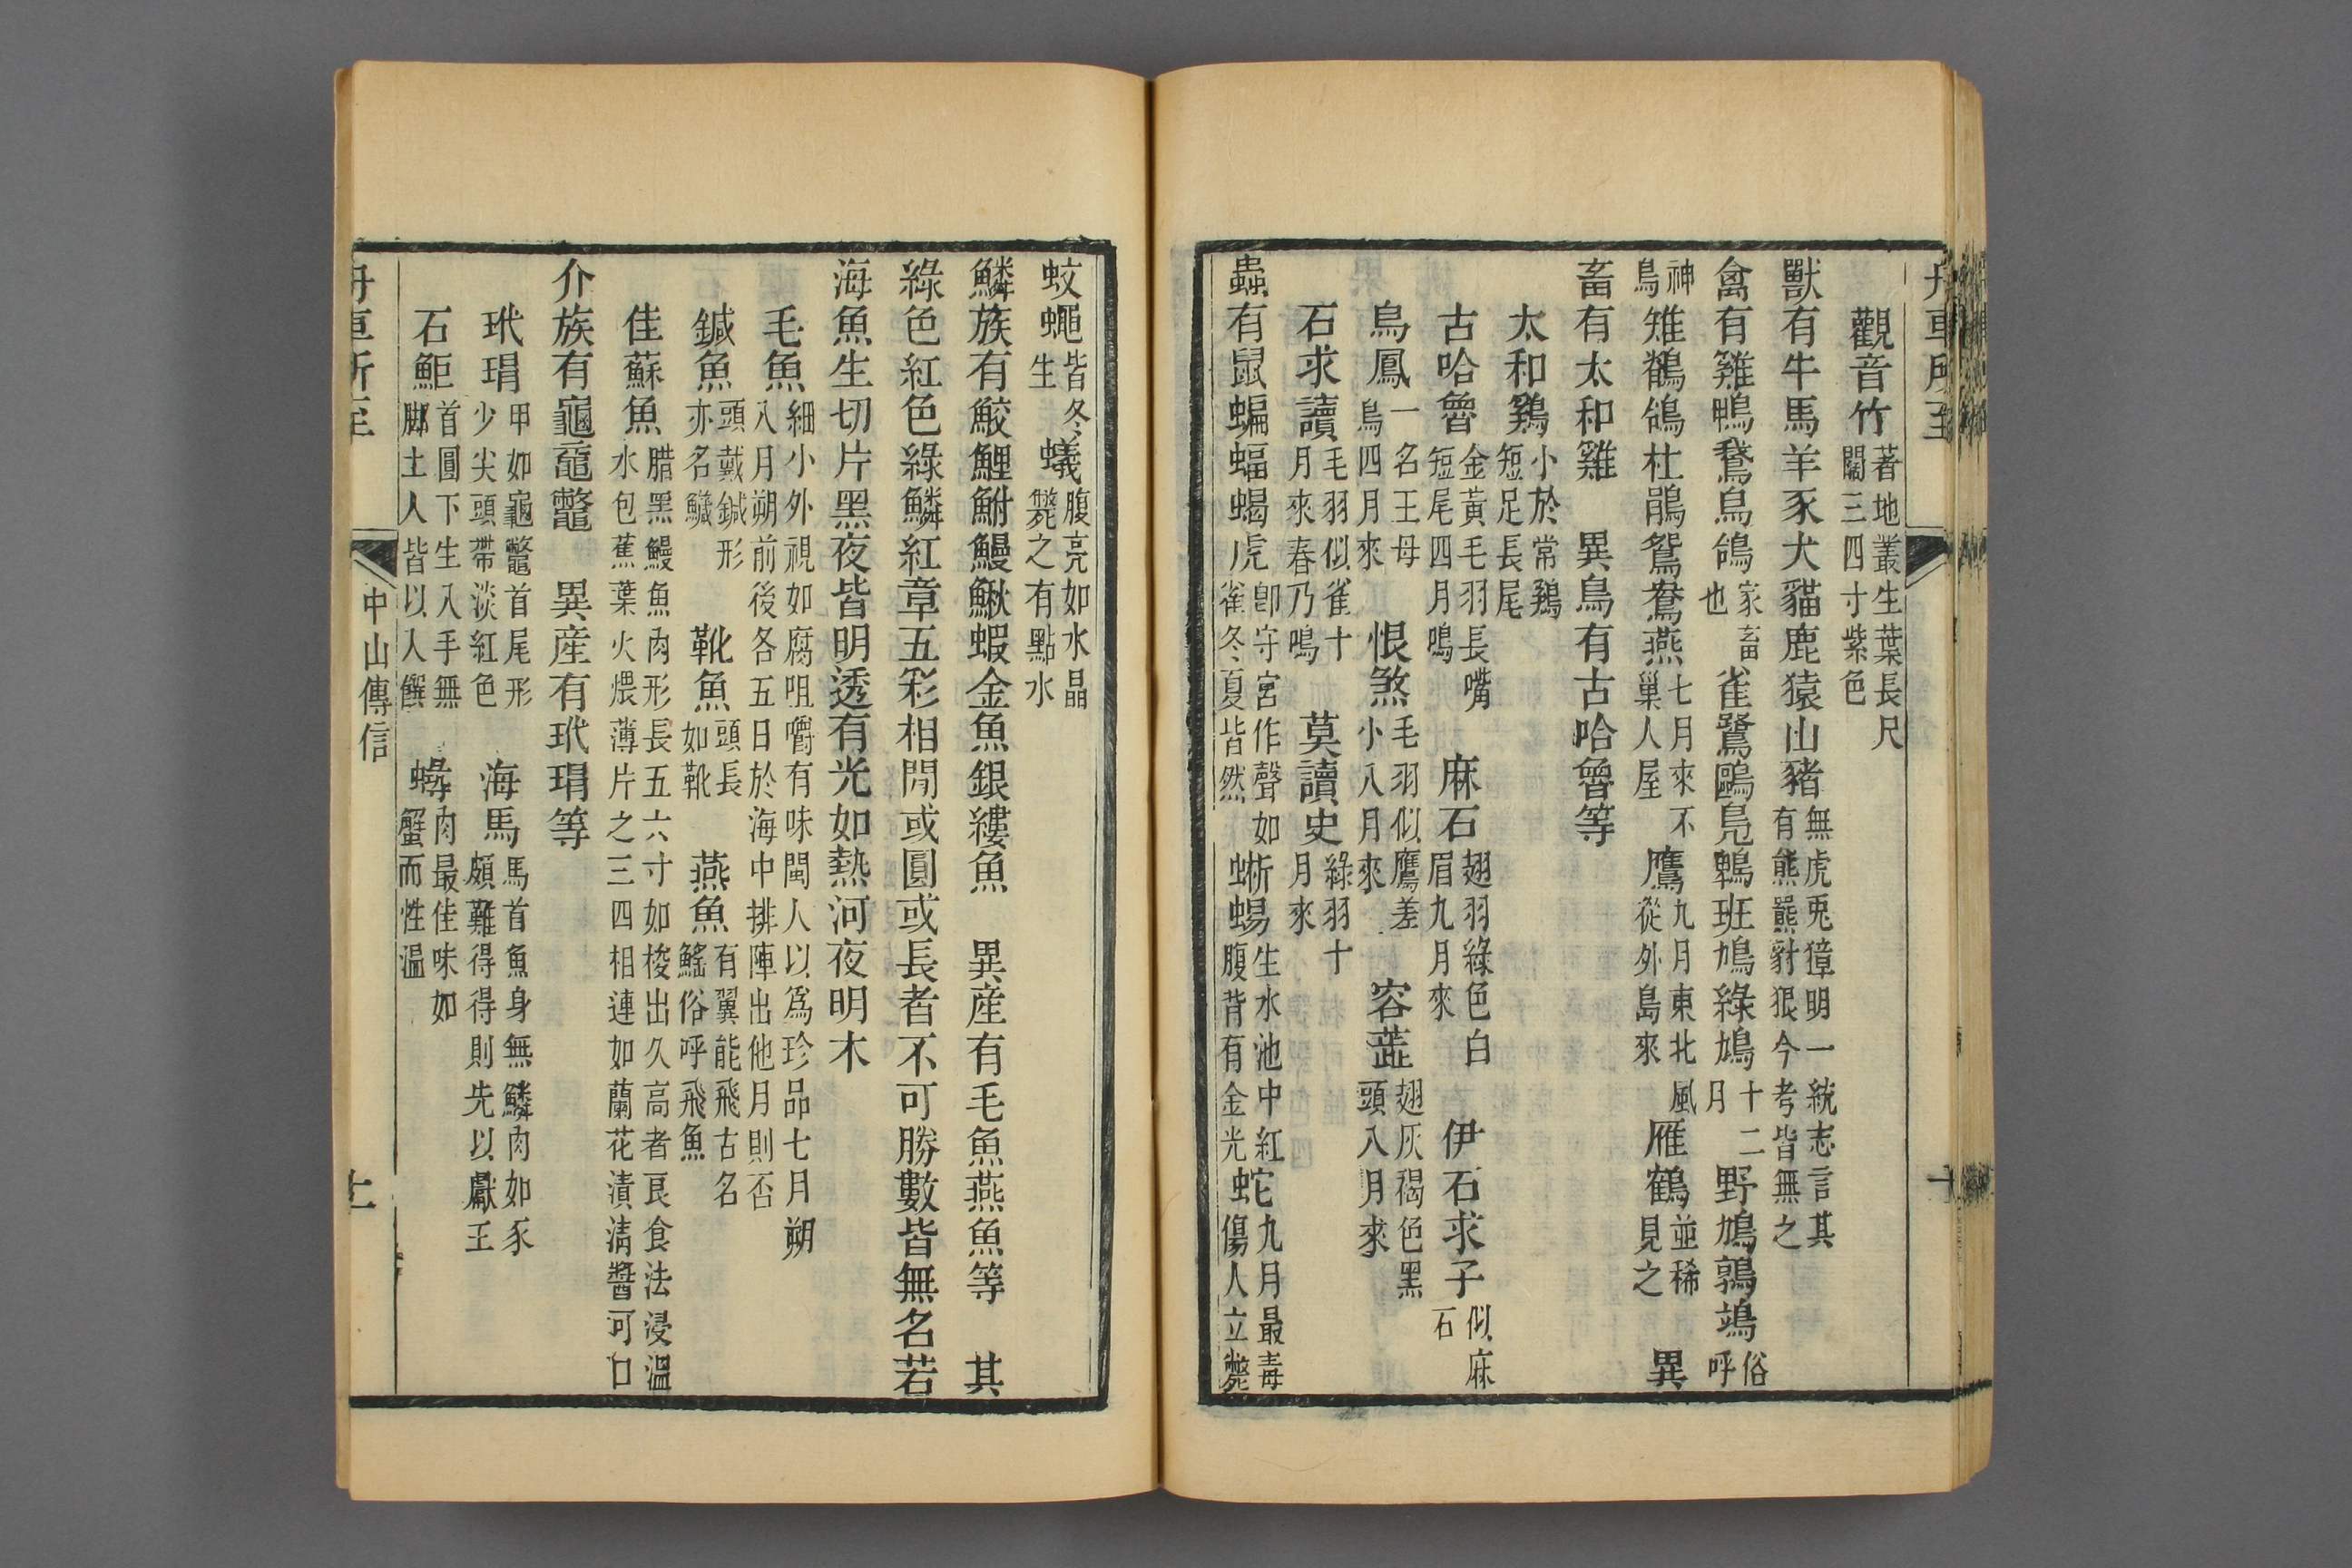 舟車所至
十
觀音竹著地叢生葉長尺闊三四寸紫色
獸有牛馬羊豕犬貓鹿猿山豬無虎兕獐明一統志言其有熊羆豺狠今考皆無之
禽有雞鴨鵞鳥鴿家畜也雀鷺鷗鳧鶤班鳩綠鳩十二月野鳩鶉鴆俗呼
神鳥雉鵲鴿杜鵑鴛鴦燕七月來不巢人屋鷹九月東北風從外島來雁鶴並稀見之 異
畜有太和雞 異鳥有古哈魯等
太和鷄小於常鷄短足長尾
古哈魯金黃毛羽長嘴短尾四月鳴 麻石翅羽綠色白眉九月來 伊石求子似麻石
鳥鳳一名王母鳥四月來 恨煞毛羽似鷹差小八月來 容蓝翅灰褐色黑頭八月來
石求讀毛羽似雀十月來春乃鳴 莫讀史綠羽十月來
蟲有鼠蝙蝠蝎虎卽守宮作聲如雀冬夏皆然蜥蜴生水池中紅腹背有金光蛇九月最毒傷人立斃
蚊蠅皆冬生蟻腹亮如水晶斃之有點水
鱗族有鮫鯉鮒鰻鰍蝦金魚銀縷魚 異産有毛魚燕魚等 其
綠色紅色綠鱗紅章五彩相閒或圓或長者不可勝數皆無名若
海魚生切片黑夜皆明透有光如熱河夜明木
毛魚細小外視如腐咀嚼有味閩人以爲珍品七月朔八月朔前後各五日於海中排陣出他月則否
鍼魚頭戴鍼形亦名鱵 靴魚頭長如靴 燕魚有翼能飛古名鰩俗呼飛魚
佳蘇魚腊黑鰻魚肉形長五六寸如梭出久高者艮食法浸溫水包蕉葉火煨薄片之三四相連如蘭花漬淸醬可口
介族有龜黿鼈 異産有玳瑁等
玳瑁甲如龜鼈首尾形少尖頭帶淡紅色 海馬馬首魚身無鱗肉如豕頗難得得則先以獻王
石鮔首圓下生入手無脚土人皆以入饌 蝳肉最佳味如蟹而性溫
舟車所至
中山傳信
十一